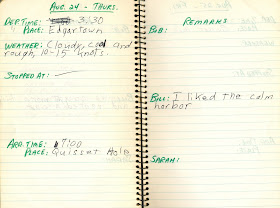 AUG. 24 - THURS.
DEP. TIME: 3:30
PLACE: Edgartown
WEATHER: Cloudy, cool and
rough, 10-15 knots.
STOPPED AT: —
ARR. TIME: 7:00
PLACE: Quissut Hole
REMARKS
BOB:
BILL: I liked the calm
harbor
SARAH: